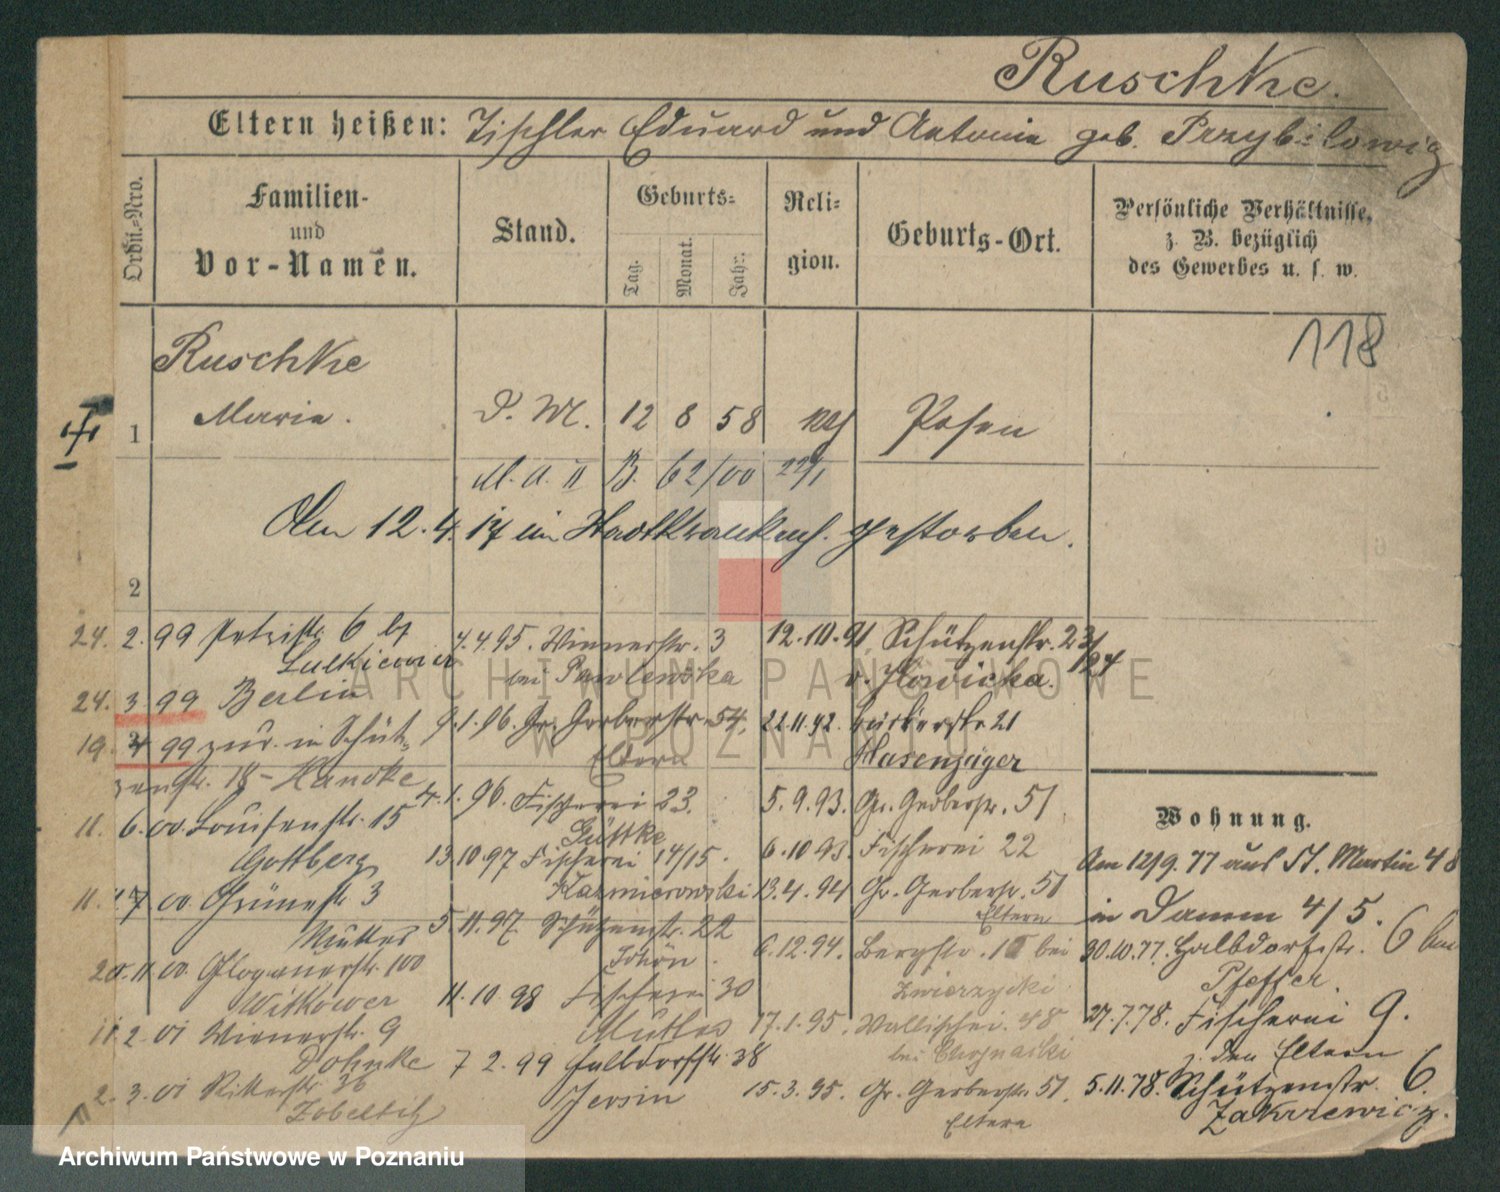 Ruschke.
Eltern heißen: Tischler Eduard und Antonie geb. Przybilowig
Ordn.-Nro.
Familien-
und
Vor-Namen.
Stand.
Geburts-
Tag.
Monat.
Jahr.
Reli-
gion.
Geburts-Ort.
Persönliche Verhältnisse,
z. B. bezüglich
des Gewerbes u. s. w.
118
Ruschke
1 Maria. D. M. 12 8 58 Posen
M. A. II B. 62/00 22/1
Am 12.4.17 im Stadtkrankenh. gestorben.
2
24. 2. 99 Petristr. 6 by
Lulkiewicz
24. 3. 99 Berlin
19. 4. 99 zur. in Schüt-
zenstr. 18 - Handke
11. 6. 00 Louisenstr. 15
Gottberg
11. 7. 00 Grünestr. 3
Mutter
20. 11. 00 Glogauerstr. 100
Witkower
11. 2. 01 Wienerstr. 9
Dohnke
2. 3. 01 Ritterstr. 36
Zobeltitz
4.4.95. Wienerstr. 3
bei Pawlewska
9.1.96. Gr. Gerberstr. 54.
Eltern
4.1.96. Fischerei 23.
Güttke
13.10.97 Fischerei 14/15.
Kazmierowski
5.11.97 Schützenstr. 22
Schön.
11.10.98 Fischerei 30
Mutter
7 2. 99 Halbdorfstr. 38
Jersin
12.10.91 Schützenstr. 23/24
v. Howicka.
22.11.92. 21
Hasenjäger
5.9.93. Gr. Gerberstr. 51
6.10.93. Fischerei 22
13.4.94 Gr. Gerberstr. 51
Eltern
6.12.94. Bergstr. bei
Zwierzycki
17.1.95. Wallischei. 48
bei Chojnacki
15.3.95. Gr. Gerberstr. 51.
Eltern
Wohnung.
Am 12/9. 77 aus St. Martin 48
in Damm 4/5.
30.10.77. Halbdorfstr. 6 bei
Pfeffer.
27.7.78. Fischerei 9.
z. den Eltern
5.11.78. Schützenstr. 6.
Zakrzewicz.
ARCHIWUM PAŃSTWOWE
W POZNANIU
Archiwum Państwowe w Poznaniu